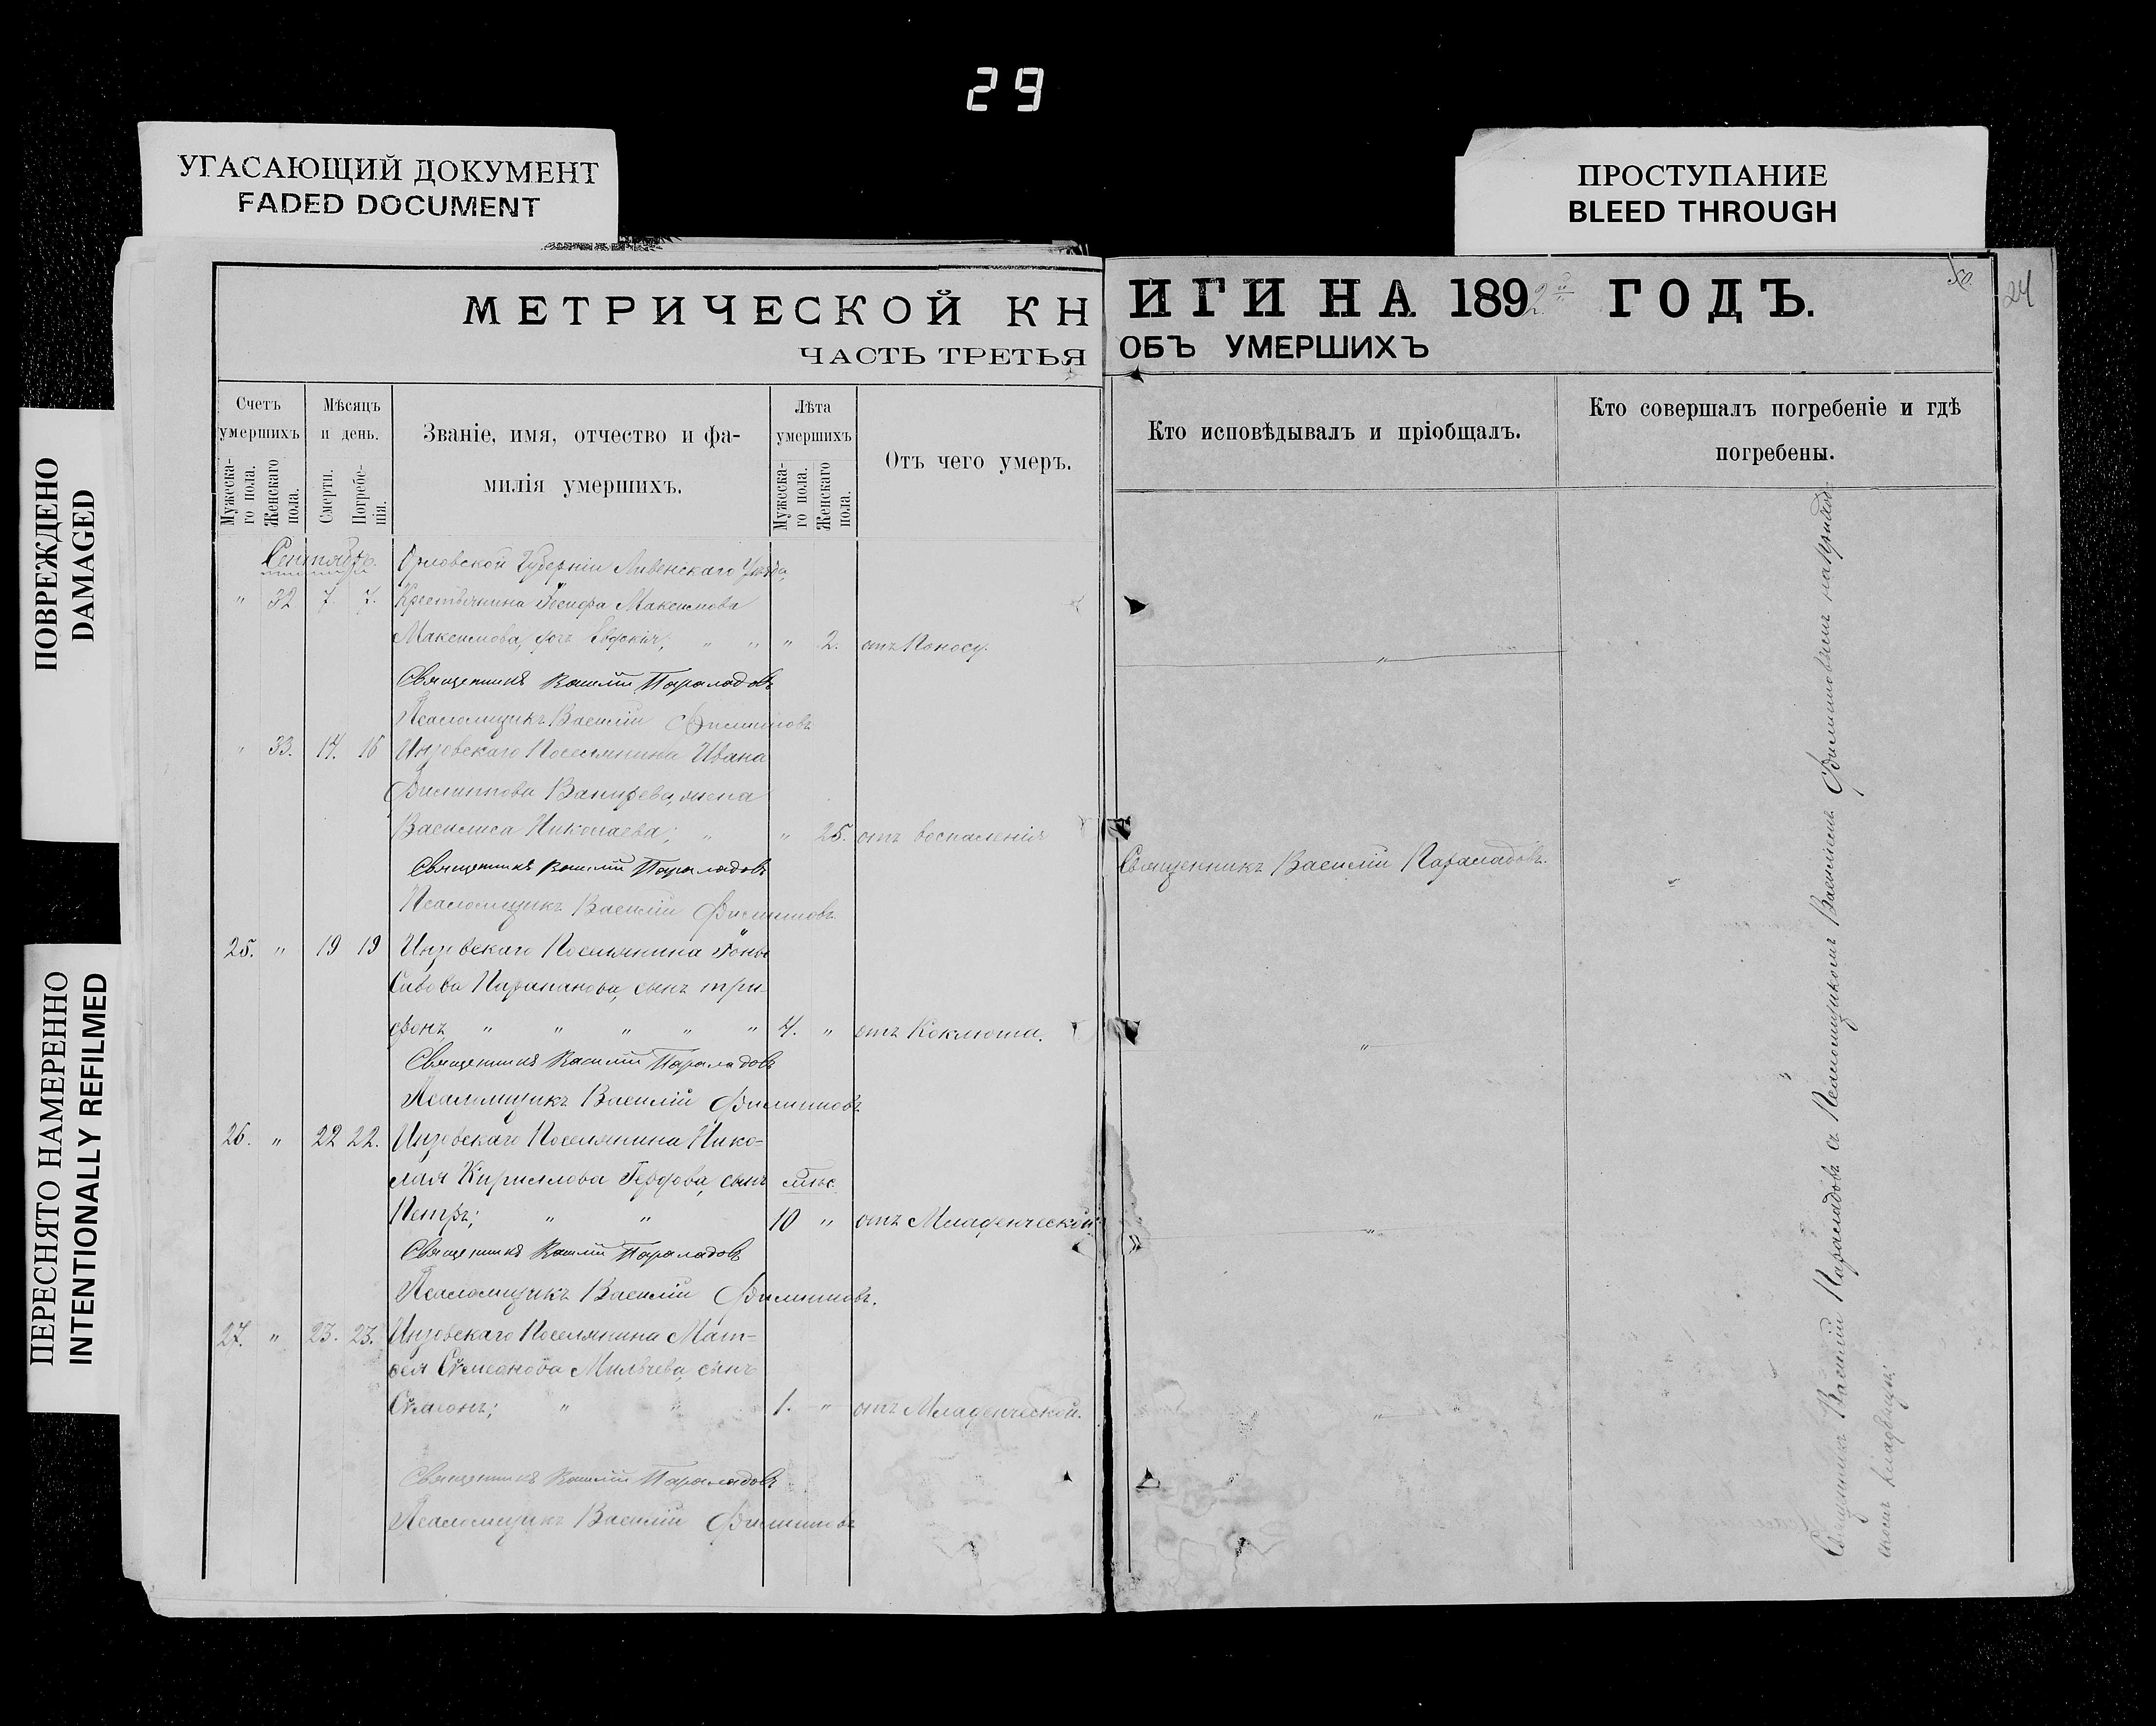 29
УГАСАЮЩИЙ ДОКУМЕНТ
FADED DOCUMENT
ПРОСТУПАНИЕ
BLEED THROUGH
ПОВРЕЖДЕНО
DAMAGED
ПЕРЕСНЯТО НАМЕРЕННО
INTENTIONALLY REFILMED
МЕТРИЧЕСКОЙ КНИГИ НА 1892 ГОДЪ.
24
ЧАСТЬ ТРЕТЬЯ ОБЪ УМЕРШИХЪ
Счетъ умершихъ
Мужеска-го пола.
Женскаго пола.
Мѣсяцъ и день.
Смерти.
Погребе-нія.
Званіе, имя, отчество и фа-
милія умершихъ.
Лѣта умершихъ
Мужеска-го пола.
Женскаго пола.
Отъ чего умеръ.
Кто исповѣдывалъ и пріобщалъ.
Кто совершалъ погребеніе и гдѣ
погребены.
Сентябрь. Орловской Губерніи Ливенскаго Уѣзда,
" 32 7 7. Крестьянина Іосифа Максимова
Максимова, дочь Евдокія, " " " 2. отъ Поносу.
Священникъ Василій Параладовъ
Псаломщикъ Василій Филипповъ
" 33. 14. 16 Инзовскаго Поселянина Ивана
Филиппова жена
Василиса Николаева; " " 25. отъ воспаленія
Священникъ Василій Параладовъ
Священникъ Василій Параладовъ.
Псаломщикъ Василій Филипповъ
25. " 19 19 Инзовскаго Поселянина Іоны
Савова сынъ Три-
фонъ, " " " " " 4. " отъ Коклюша.
Священникъ Василій Параладовъ
Псаломщикъ Василій Филипповъ
26. " 22 22. Инзовскаго Поселянина Нико-
лая Кириллова сынъ мѣс.
Петръ; " " 10 " отъ Младенческой
Священникъ Василій Параладовъ
Псаломщикъ Василій Филипповъ.
27. " 23. 23. Инзовскаго Поселянина Мат-
фея Симеонова Мильчева, сынъ
Симеонъ; " " 1. " отъ Младенческой.
Священникъ Василій Параладовъ
Псаломщикъ Василій Филипповъ
Священникъ Василій Параладовъ съ Псаломщикомъ Василіемъ Филипповымъ на приход-
скомъ кладбищѣ.